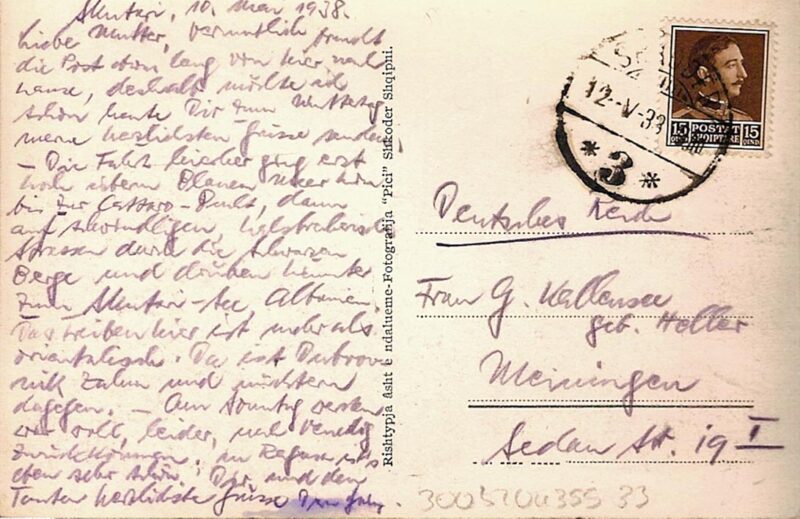 Skutari, 10. Mai 1938.
Liebe Mutter, vermutlich braucht
die Post etwas lang von hier nach
hause, deshalb möchte ich
schon heute Dir zum Muttertag
meine herzlichsten Grüsse senden
– Die Fahrt hierher ging erst
hoch überm Blauen Meer hin
bis zur Cattaro-Bucht, dann
auf schwindligen, halsbrecherischen
Strassen durch die schwarzen
Berge und drüben hinunter
zum Skutari-See, Albanien.
Das treiben hier ist mehr als
orientalisch. Da ist Dubrovnik
zahm und nüchtern
dagegen. – Am Sonntag werden
wir wohl, leider, nach Venedig
zurückkommen. In Ragusa ists
eben sehr schön! Dir und den
Tanten herzlichste Grüsse Dein
Rishtypja âsht e ndalueme-Fotografija "Pici" Shkoder Shqipni.
12-V-38
*3*
15 QIND POSTAT SHQIPTARE 15 QIND
Deutsches Reich
Frau G. Kallensee
geb. Heller
Meiningen
Sedan Str. 19 I
3005204355 33